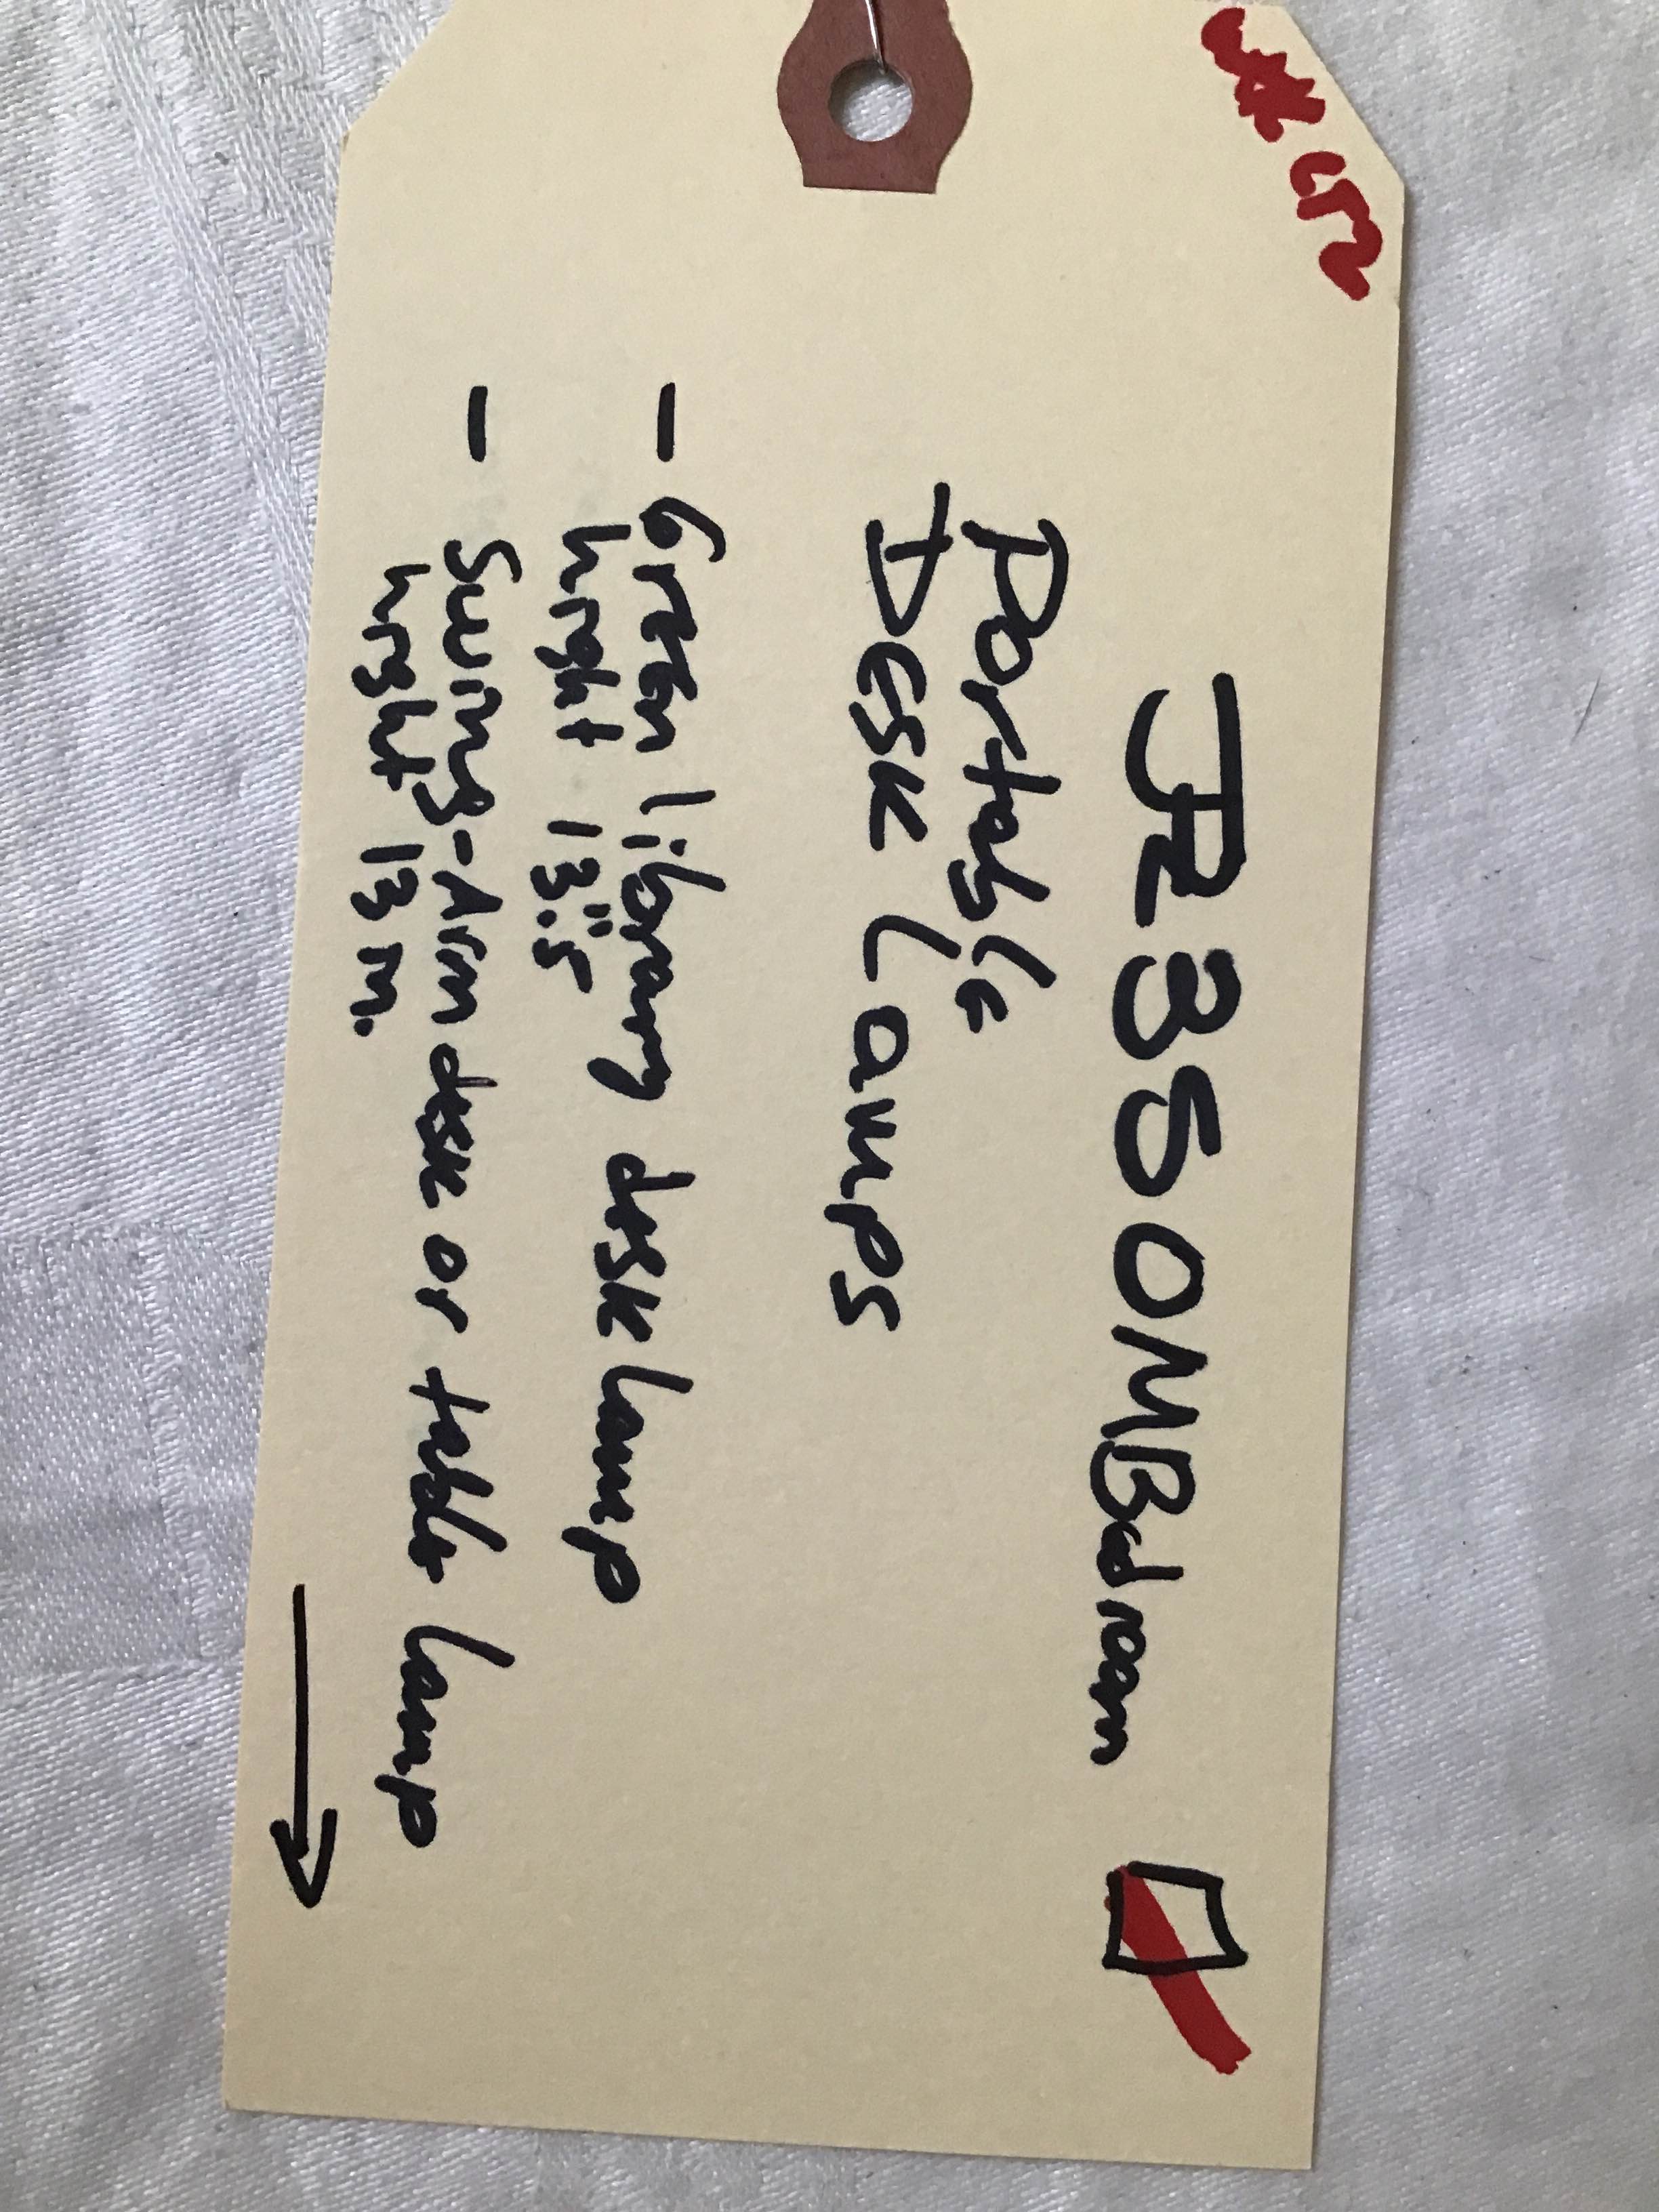 JR 3 S OMBedroom
Portable
Desk Lamps
- Green library desk lamp
height 13".5
- Swing-Arm desk or table lamp
hnght 13 in.